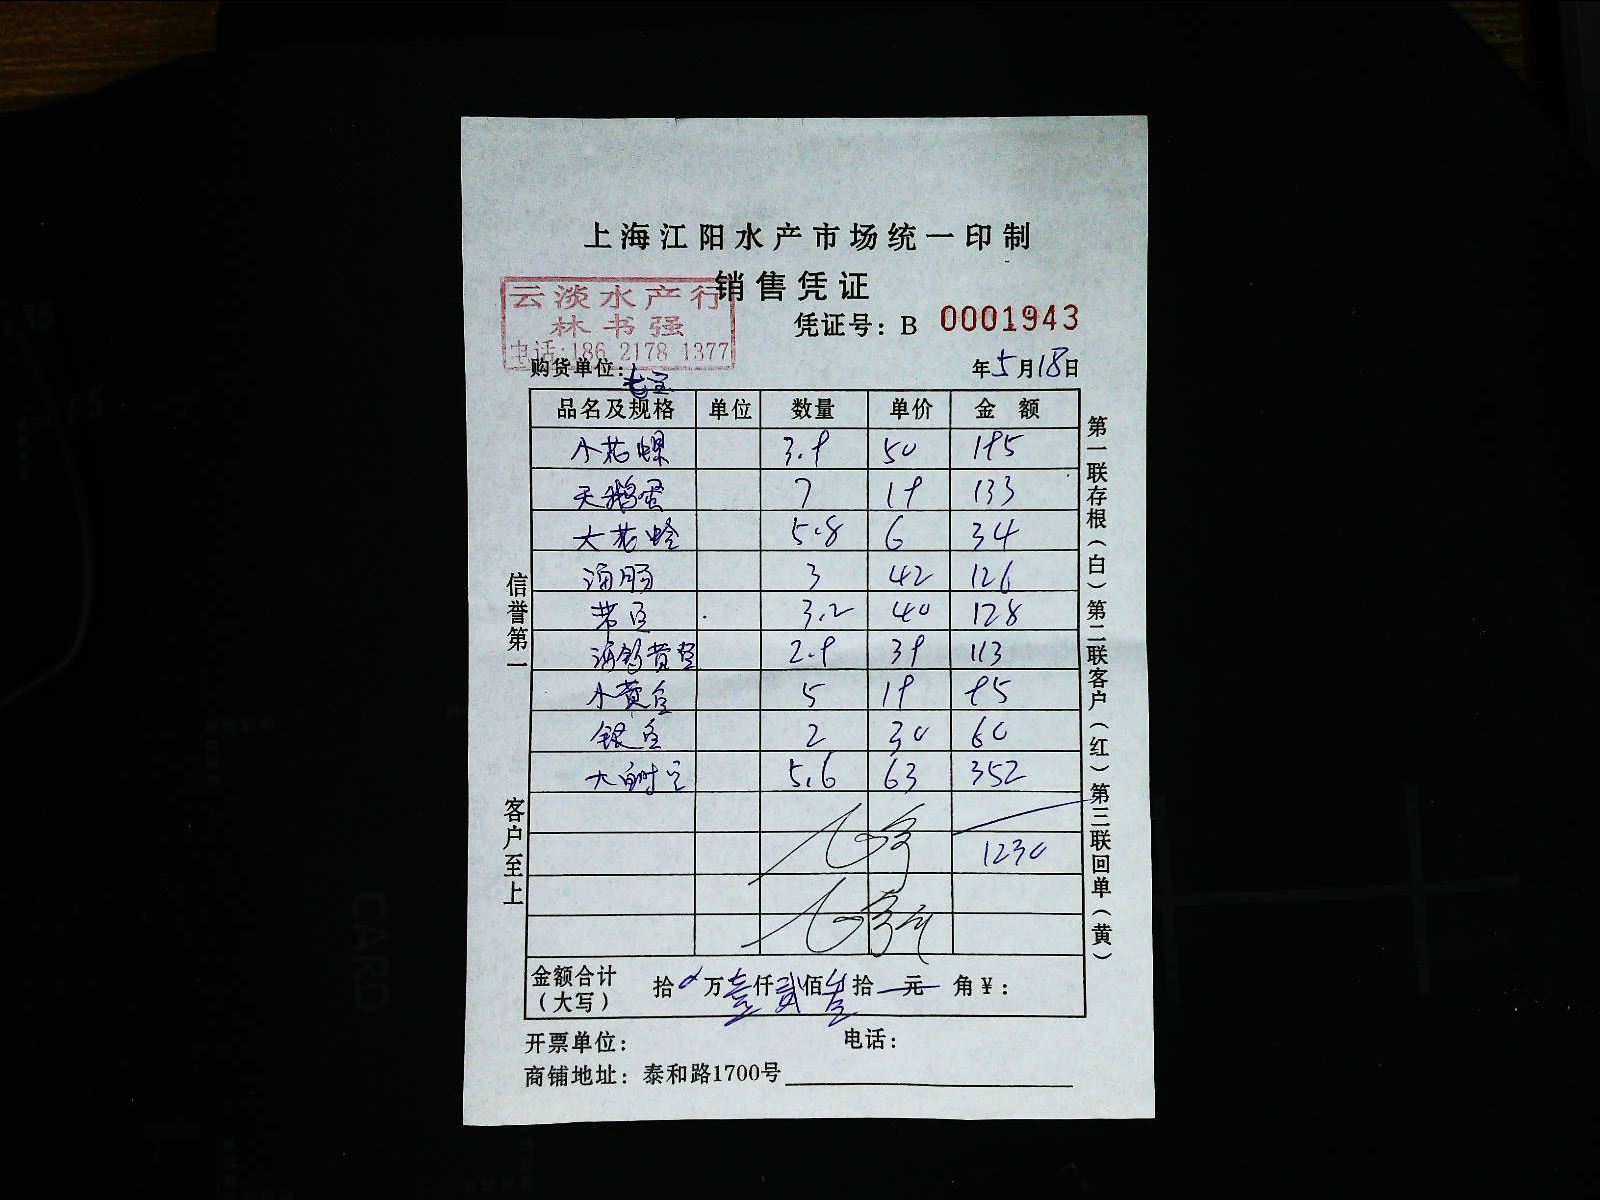 上海江阳水产市场统一印制
销售凭证
云淡水产行
林书强
电话:186 2178 1377
凭证号：B 0001943
购货单位：
年5月18日
品名及规格 单位 数量 单价 金额
小花螺 3.9 50 195
天鹅蛋 7 19 133
大花蛤 5.8 6 34
海肠 3 42 126
带鱼 3.2 40 128
2.9 39 113
小黄鱼 5 19 95
银鱼 2 30 60
5.6 63 352
1230
金额合计（大写） 拾 万壹仟贰佰叁拾 元 角￥：
开票单位： 电话：
商铺地址：泰和路1700号
信誉第一
客户至上
第一联存根（白）第二联客户（红）第三联回单（黄）